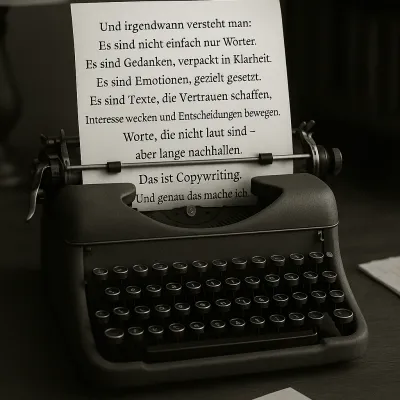 Und irgendwann versteht man:
Es sind nicht einfach nur Wörter.
Es sind Gedanken, verpackt in Klarheit.
Es sind Emotionen, gezielt gesetzt.
Es sind Texte, die Vertrauen schaffen,
Interesse wecken und Entscheidungen bewegen.
Worte, die nicht laut sind –
aber lange nachhallen.
Das ist Copywriting.
Und genau das mache ich.